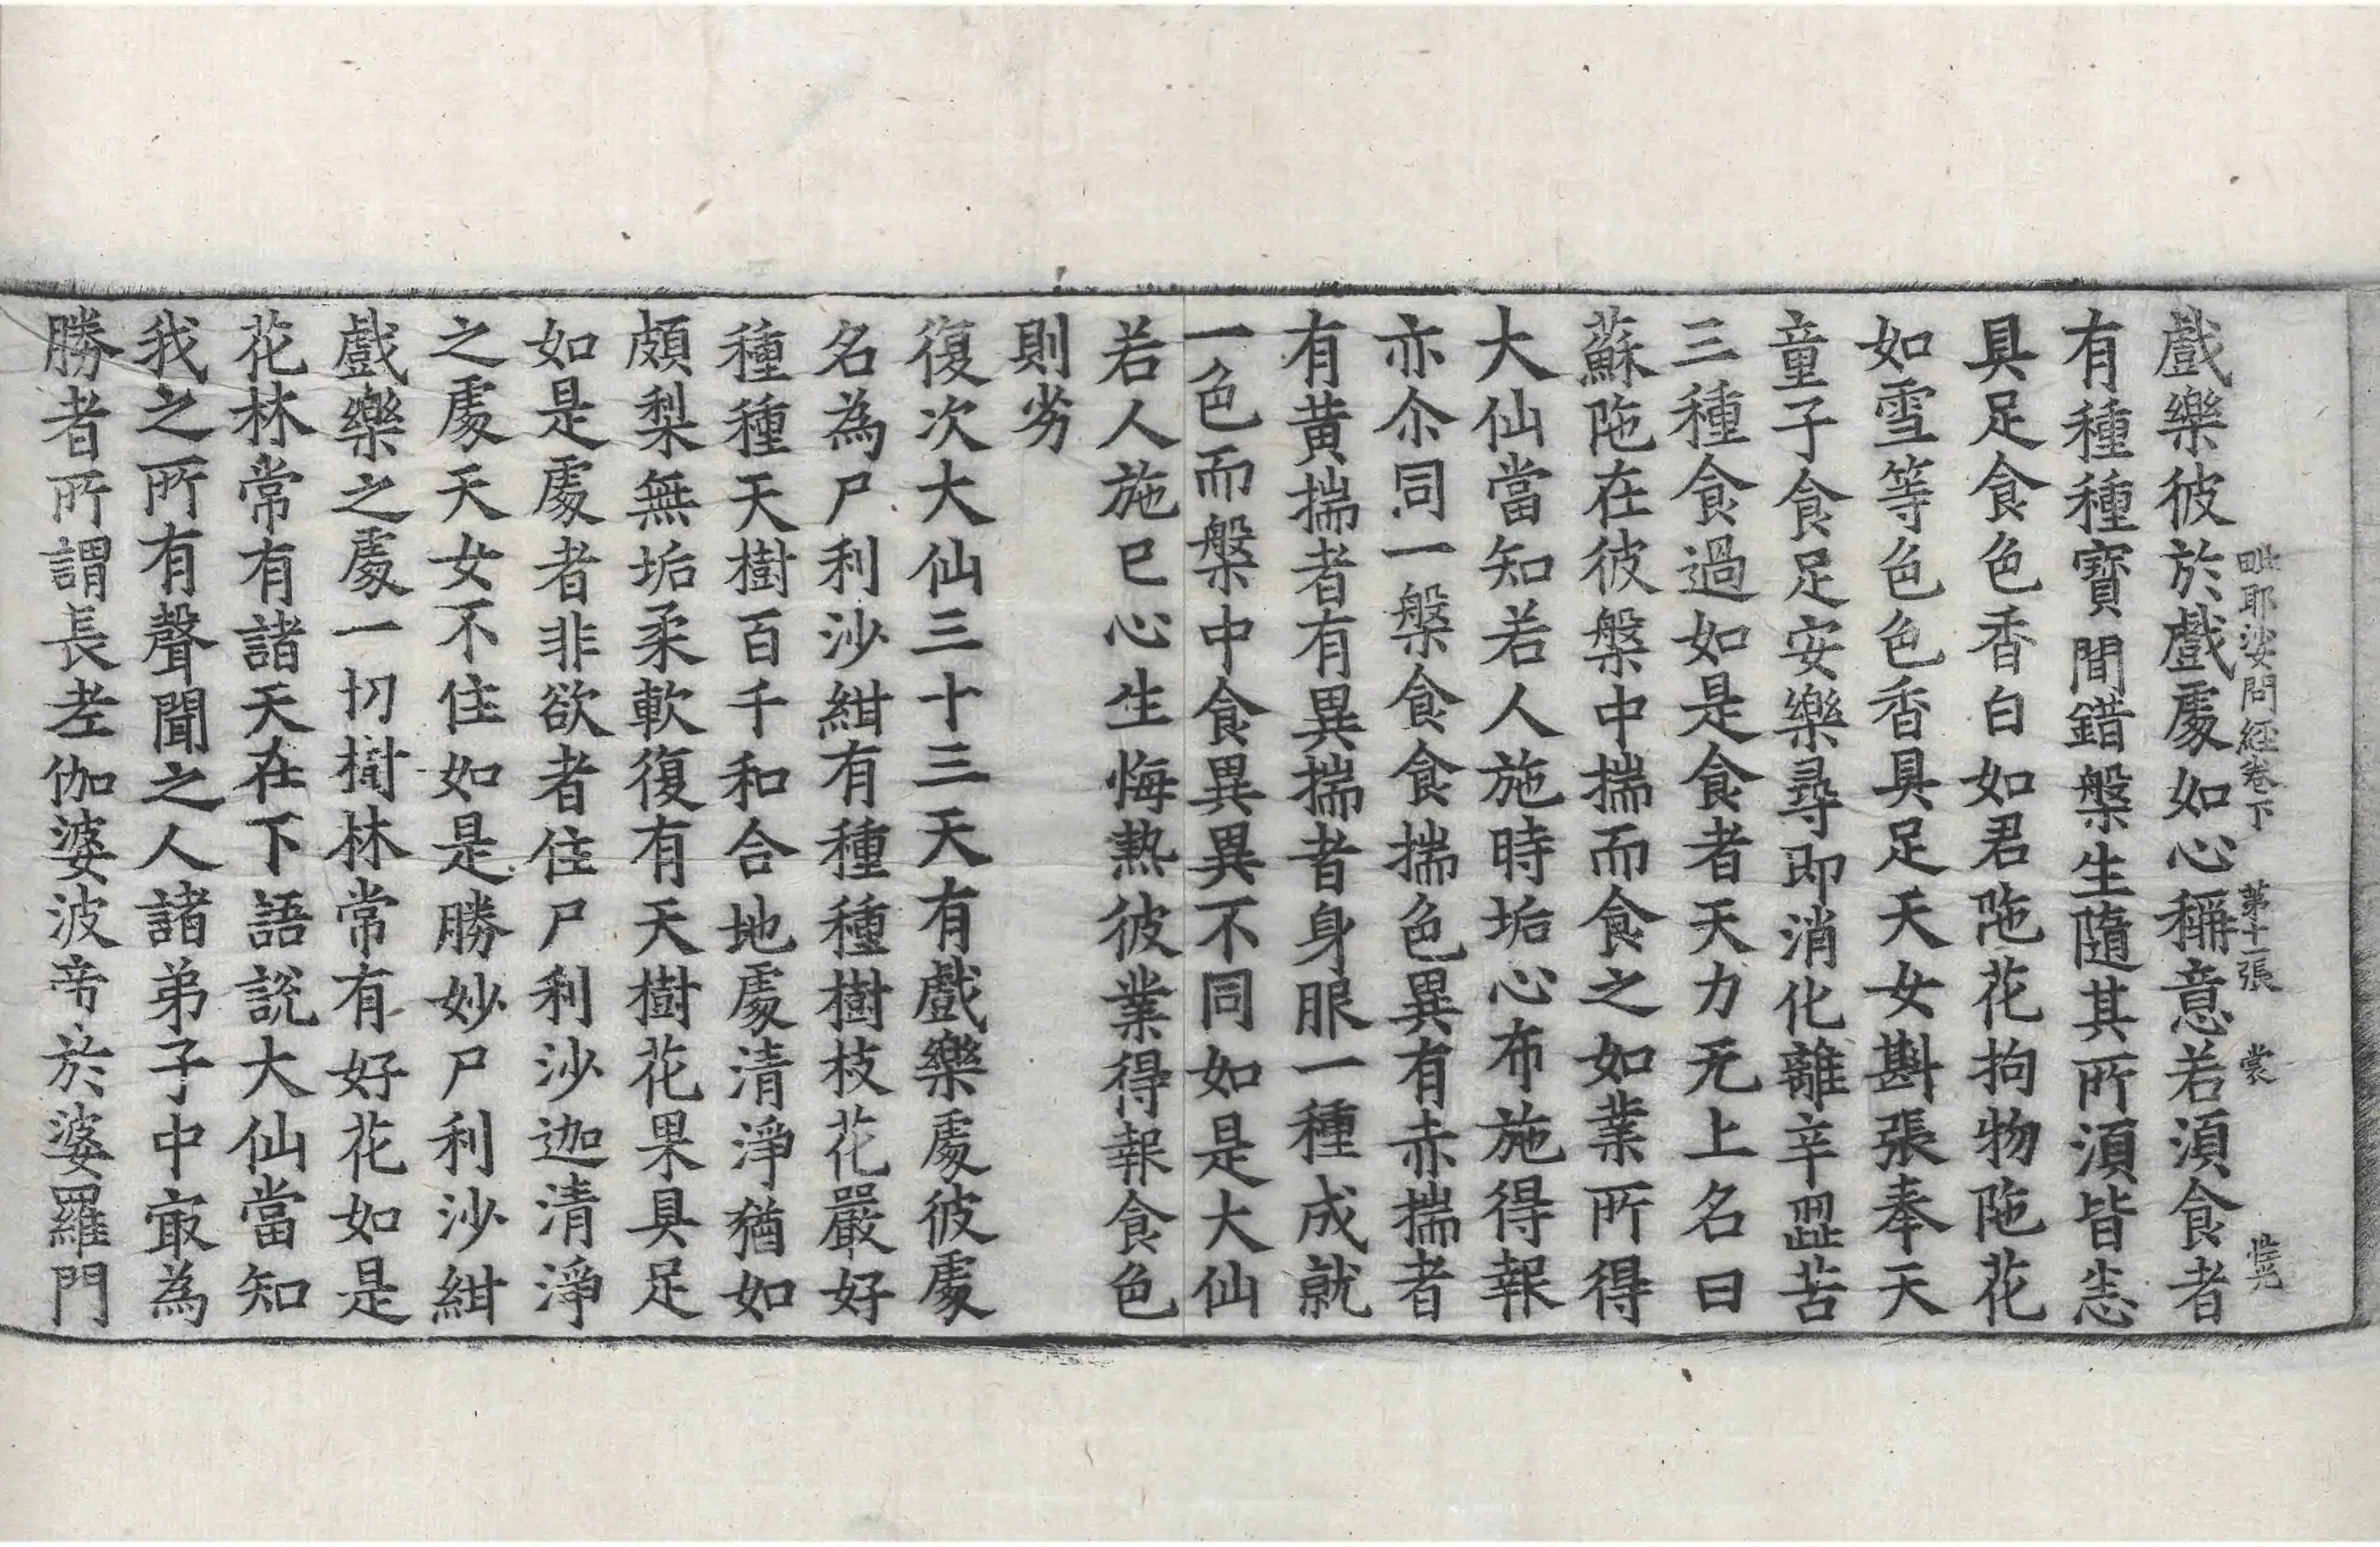 毗耶娑問經卷下 第十一張 裳
戲樂彼於戲處如心稱意若湏食者
有種種寶間錯槃生隨其所湏皆悉
具足食色香白如君陁花拘物陁花
如雪等色色香具足天女斟張奉天
童子食足安樂尋即消化離辛澀苦
三種食過如是食者天力无上名曰
蘇陁在彼槃中揣而食之如業所得
大仙當知若人施時垢心布施得報
亦尒同一槃食食揣色異有赤揣者
有黃揣者有異揣者身服一種成就
一色而槃中食異異不同如是大仙
若人施已心生悔熱彼業得報食色
則劣
復次大仙三十三天有戲樂處彼處
名為尸利沙紺有種種樹枝花嚴好
種種天樹百千和合地處清淨猶如
頗梨無垢柔軟復有天樹花果具足
如是處者非欲者住尸利沙迦清淨
之處天女不住如是勝妙尸利沙紺
戲樂之處一切樹林常有好花如是
花林常有諸天在下語說大仙當知
我之所有聲聞之人諸弟子中㝡為
勝者所謂長老伽婆波帝於婆羅門